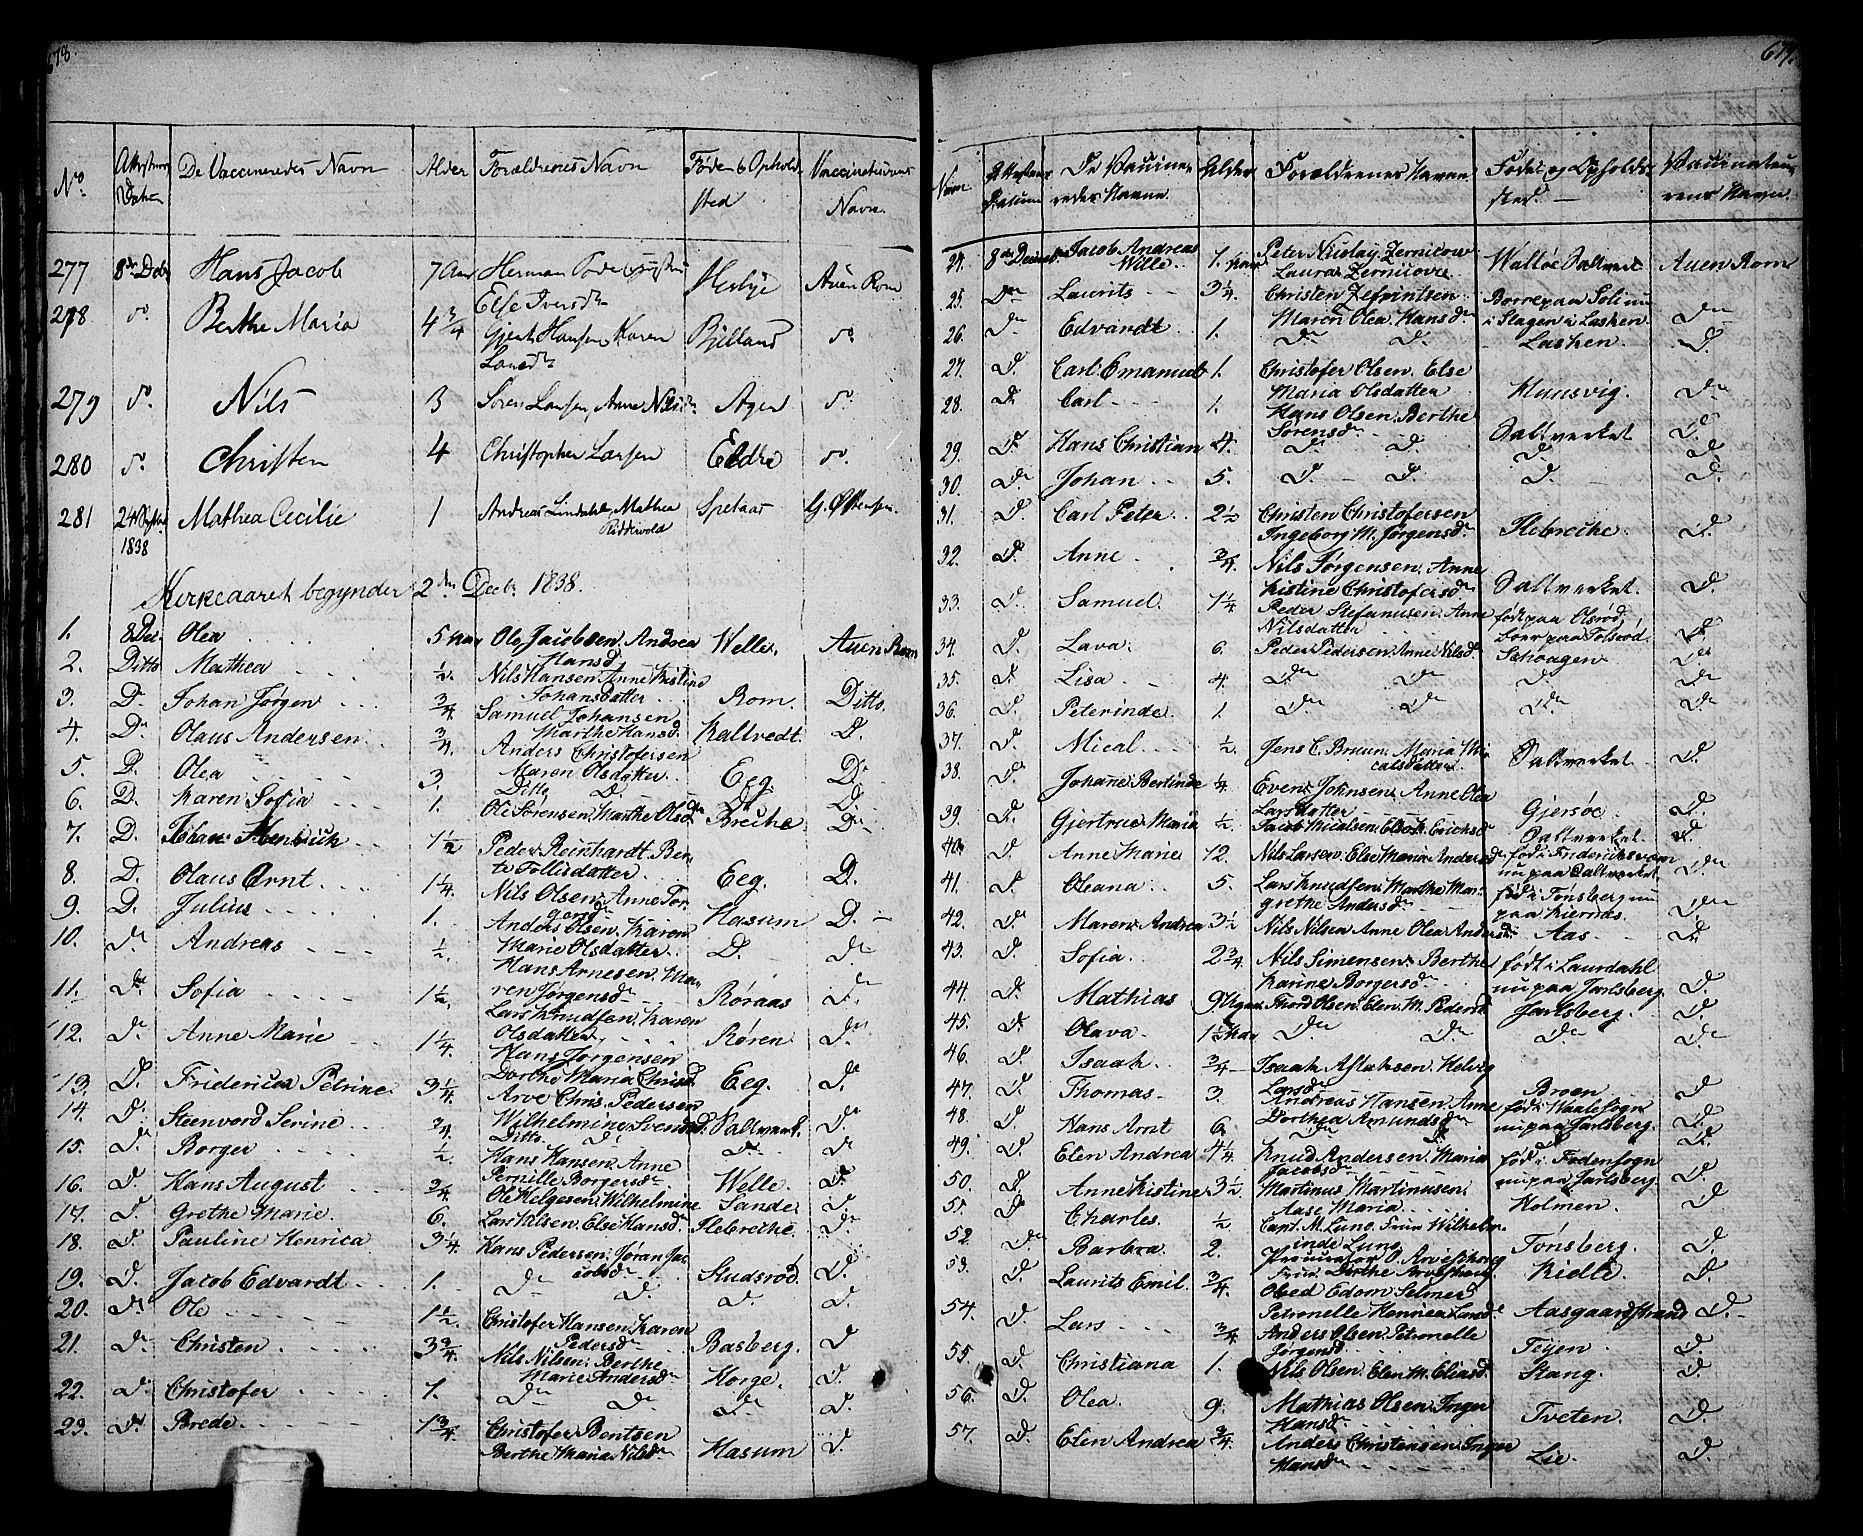 678.
No. Attestens Datum De Vaccineredes Navn Alder Forældrenes Navn Føde & Opholdsted Vaccinateurens Navn.
277 8de Decbr Hans Jacob 7 Aar Herman
Else Iversdr Auen Rom
278 do. Berthe Maria 4 3/4 Gjert Hansen Karen
Larsdr Bjelland do.
279 do. Nils 3 Søren Larsen, Anne Nilsdr. Agen do.
280 do. Christen 4 Christopher Larsen do.
281 24 Septbr 1838 Mathea Cecilie 1 Andreas Lindahl, Mathea
Ridderwold
Kirkeaaret begynder 2den Decbr. 1838.
1. 8 Dec. Olea 5 Aar Ole Jacobsen. Andrea
Hansd. Welle. Auen Rom
2. Ditto Mathea 1/2. Nils Hansen. Anne Kistine
Johansdatter Rom. Ditto.
3. D. Johan Jørgen 3/4. Samuel Johansen
Marthe Hansd. Kaltvedt. D.
4. Dr Olaus Andersen 3/4. Anders Christofersen
Maren Olsdatter. Eeg. D.
5. D. Olea 3. Ditto D. D. D.
6. D. Karen Sofia 1. Ole Sørensen. Marthe Olsdr Breche D.
7. D. Johan Henrick 1 1/2 Peder Reinhardt. Ber-
te Tollisdatter. Eeg. D.
8. D. Olaus Arnt 1 1/4. Nils Olsen. Anne Tor-
gersdr Hasum D.
9. D. Julius 1. Anders Olsen. Karen
Marie Olsdatter D. Dr
10. Dr Andreas 1/2. Hans Arnesen. Ma-
ren Jørgensdr Røraas D.
11. Dr Sofia 1 1/2. Lars Knudsen. Karen
Olsdatter. Røren Dr.
12. Dr Anne Marie 1 1/4. Hans Jørgensen
Dorthe Maria Christd Eeg. D.
13. D. Fridericka Petrine 3 1/4. Arve Chris. Pedersen
Wilhelmine Svendsd. Saltværk. D.
14. D. Steenvord Serine 3/4. Ditto. D. D. D
15. Dr Borger 1/2. Hans Hansen. Anne
Pernille Borgersdr Welle. D.
16. D. Hans August 3/4. Ole Helgesen. Wilhelmine Sande D.
17. D. Grethe Marie. 6. Lars Nilsen. Else Hansd. Flebreche. D.
18. D. Pauline Henrica 3 1/4. Hans Pedersen. Jøran Ja-
cobsdr Studsrød. D.
19. D. Jacob Edvardt 1. Dr D. D. D.
20. Dr Ole 1 1/2. Christofer Hansen. Karen
Pedersdr Basberg. D.
21. Dr Christen 3 3/4. Nils Nilsen. Berthe
Marie Andersdr Horge. D.
22. D. Christofer 1. Dr Dr Dr D.
23. Dr Brede 1 3/4. Christofer Bentsen
Berthe Maria Nilsdr Hasum D.
679.
Num. Attestens Datum De Vaccineredes Navne. Alder Forældrenes Navne Føde- og Opholdssted. Vaccinateurens Navn.
24. 8de Decembr Jacob Andreas
Wille. 1. Aar Peter Nicolay Zernicow
Laura Zernicow Walløe Saltverk Auen Rom
25. Dr Laurits 3 1/4. Christen Zefrintsen
Maren Olea Hansdr Borre paa Soli nu
i Slagen i Lasken Dr
26. Dr Edvardt 1. Dr D. Lasken. D.
27. D. Carl Emanuel 1. Christofer Olsen. Else
Maria Olsdatter Husvig. Dr
28. D. Carl 1. Hans Olsen. Berthe
Sørensdr Saltverket D.
29. D. Hans Christian 4. D. D. D. D.
30. Dr Johan 5. D. D. D. D.
31. D. Carl Peter 2 1/2 Christen Christofersen
Ingeborg M. Jørgensd. Flebreche. D.
32. D. Anne 3/4. Nils Jørgensen. Anne
Kistine Christofersdr Saltverket D.
33. D. Samuel. 7 1/4 Peder Stefanusen. Anne
Nilsdatter født paa Olsrød,
boer paa Tolsrød. D.
34. D. Lava 6. Peder Pedersen. Anne Nilsd. Schaagen D.
35. D. Lisa 4. Dr Dr D. Dr
36. D. Peterinde 1. Dr Dr Dr. Dr
37. D. Mical 1/2. Jens C. Bruun. Maria Mi-
calsdatter. Saltverket D.
38. Dr Johane Berlinde 1/4 Even Johnsen. Anne Olea
Larsdatter Gjersøe D.
39. D. Gjertrue Maria 1/2. Jacob Micalsen. Else K. Erichsd. Saltverket D.
40. D. Anne Marie 12. Nils Larsen. Else Maria Andersdr født i Frideriksværn
nu paa Saltverket. Dr
41. D. Oleana 5. Lars Knudsen. Marthe Mar-
grethe Andersdr født i Tønsberg nu
paa Kiernæs. Dr
42. Dr Maren Andrea 3 1/2 Nils Nilsen Anne Olea Andersd. Aas D.
43. D. Sofia 2 3/4. Nils Simensen. Berthe
Karine Borgersdr født i Laurdahl
nu paa Jarlsberg. D.
44. D. Mathias 9 Ugen Thord Olsen. Elen M. Pedersd Jarlsberg. D.
45. D. Olava 1 1/2 Aar Dr Dr Dr Dr
46. D. Isaah. 3/4 Isaah Aslaksen. Helvig
Larsdr Broen D
47. D. Thomas 3. Andreas Hansen. Anne
Dorthea Amundsdr født i Haale Sogn
nu paa Jarlsberg. D.
48. D. Hans Arnt 6. Dr D. D. D.
49. D. Elen Andrea 4 1/4 Knud Andersen. Maria
Jacobsdr født i Fodensogn
nu paa Jarlsberg. D.
50. D. Anne Kistine 3 1/2. Martinus Martinusen.
Aase Maria Holmen. D
51. D. Charles. 1/2 Capt. M. Lund. Frue Wilhelm-
inde Lund Tønsberg. D.
52. Dr Barbra 2. Procurator O. Arveschoug
Frue Dorthe Arveschoug Kielle. D.
53. D. Laurits Emil. 3/4. Obed Edom Selmer
Petronelle Henrica Larsdr Aasgaardstrand D.
54. D. Lars 3/4 Anders Olsen. Petronelle
Jørgensd. Feyen. D.
55. D. Christiana 1. Nils Olsen. Elen M. Eliasd. Stang. D.
56. D. Olea 9. Mathias Olsen. Inger
Hansdr Tveten. D.
57. D. Elen Andrea 3/4. Anders Christensen. Inger
Hansdr Lie. D.